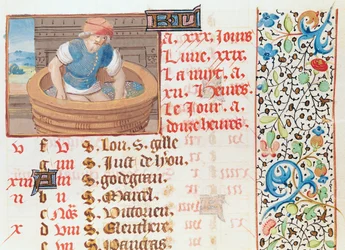 KL
a. xxx. Jours
Lune. xxix.
La nuyt. a.
xii. heures.
Le Jour. a
douze heures.
v f v S. Lou. S. gille
g iiii S. Just de lyon.
xiii A iii S. godegran.
ii b ii S. Marcel.
c No͞s S. Victorien.
x d viii S. Eleuthere.
e vii S. Pancras